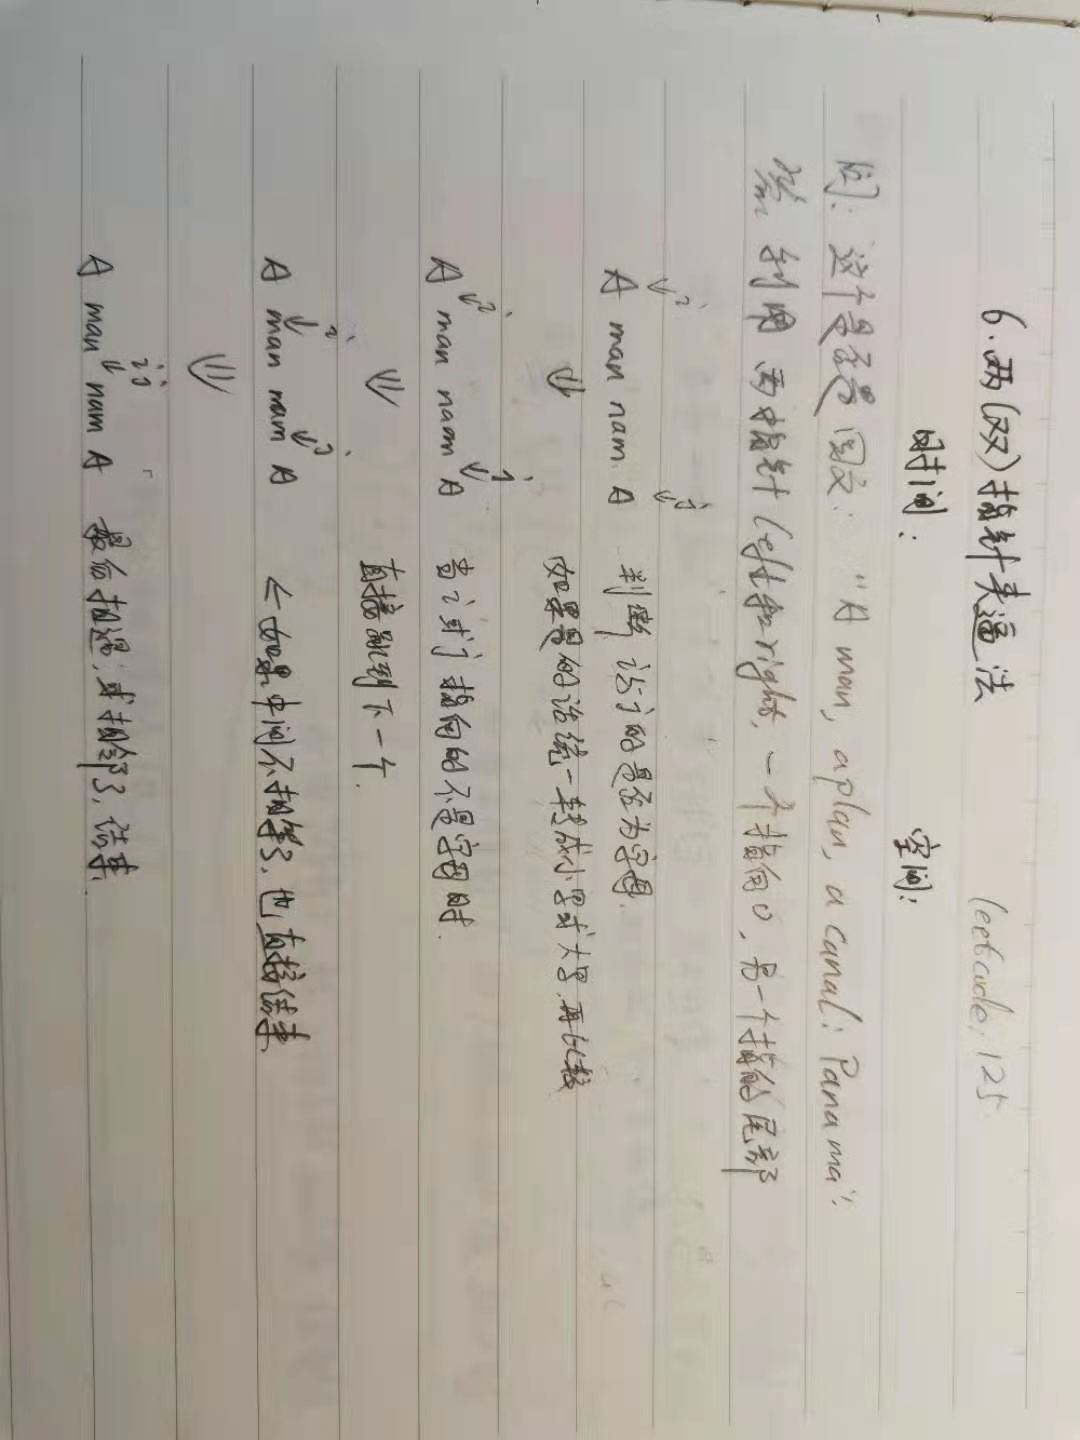 6.两(双)指针夹逼法 leetcode: 125
时间: 空间:
问: 这个是否是回文: "A man, a plan, a canal: Panama".
答: 利用 两指针 left和right, 一个指向0, 另一个指的尾部
i j
A man nam A 判断 i与j的是否为字母.
如果是的话统一转成小写或大写,再比较
i j
A man naam A 当i或j指向的不是字母时.
直接跳到下一个.
i j
A man nam A ← 如果中间不相等了,也直接结束
i j
A man nam A 最后相遇,或相邻了,结束.